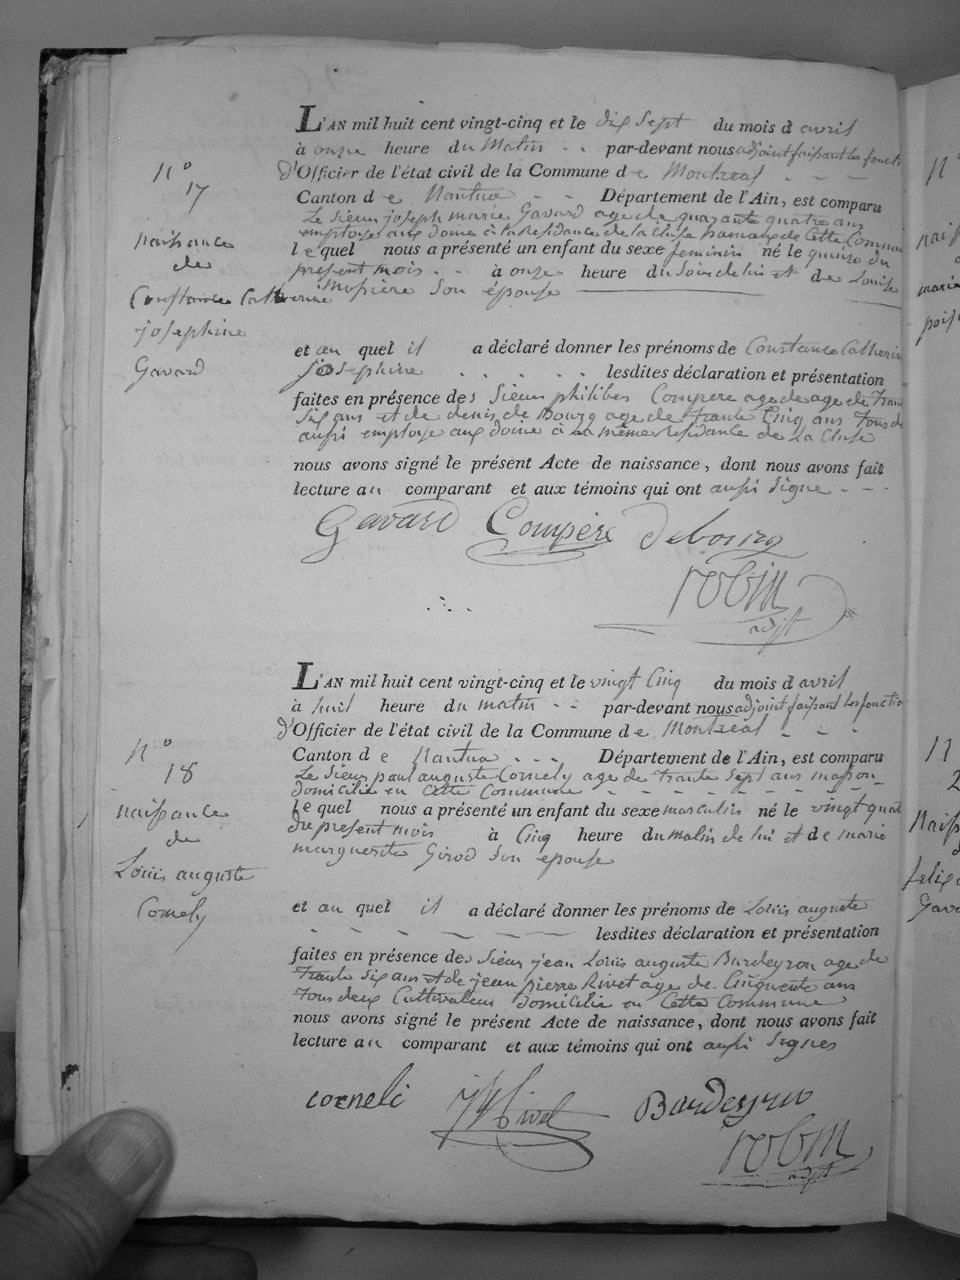 N° 17
naissance
de
Constance Catherine
josephine
Gavard
L'AN mil huit cent vingt-cinq et le dix Sept du mois d avril
à onze heure du Matin - - par-devant nous adjoint faisant les foncti
d'Officier de l'état civil de la Commune de Montreal - - -
Canton de Nantua - - Département de l'Ain, est comparu
Le Sieur joseph marie Gavard age de quarante quatre ans
employé aux douane à la Residance de la Cluse hamau de Cette Commune
lequel nous a présenté un enfant du sexe feminin né le quinze du
present mois - - à onze heure du Soir de lui et de Louise
son épouse
et au quel il a déclaré donner les prénoms de Constance Catherine
josephine - - - - - lesdites déclaration et présentation
faites en présence des Sieur philiber Compere age de age de trante
Six ans et de denis de Bourg age de trante Cinq ans Tous de
aussi employe aux doine à la même residance de La Cluse
nous avons signé le présent Acte de naissance, dont nous avons fait
lecture au comparant et aux témoins qui ont aussi signe - - -
Gavard Compère debourg
robin
adjt
N° 18
naissance
de
Louis auguste
Cornely
L'AN mil huit cent vingt-cinq et le vingt Cinq du mois d avril
à huit heure du matin - - par-devant nous adjoint faisant les fonctio
d'Officier de l'état civil de la Commune de Montreal - - -
Canton de Nantua - - - Département de l'Ain, est comparu
Le Sieur paul auguste Cornely age de trante Sept ans masson
domicilié en Cette Commune - - - - - -
Le quel nous a présenté un enfant du sexe masculin né le vingt quat
du present mois à Cinq heure du matin de lui et de marie
marguerite Girod son epouse
et au quel il a déclaré donner les prénoms de Louis auguste
- - - - - - lesdites déclaration et présentation
faites en présence des Sieur jean Louis auguste Bardeyron age de
trante Six ans et de jean pierre Rivet age de Cinquente ans
Tous deux Cultivateur domicilié en Cette Commune
nous avons signé le présent Acte de naissance, dont nous avons fait
lecture au comparant et aux témoins qui ont aussi Signes
corneli Rivet Bardeyron
robin
adjt